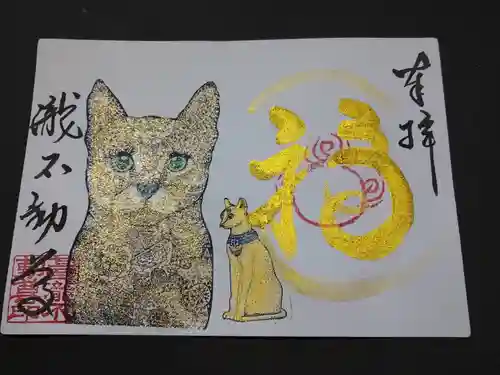 奉拝
福
瀧不動尊